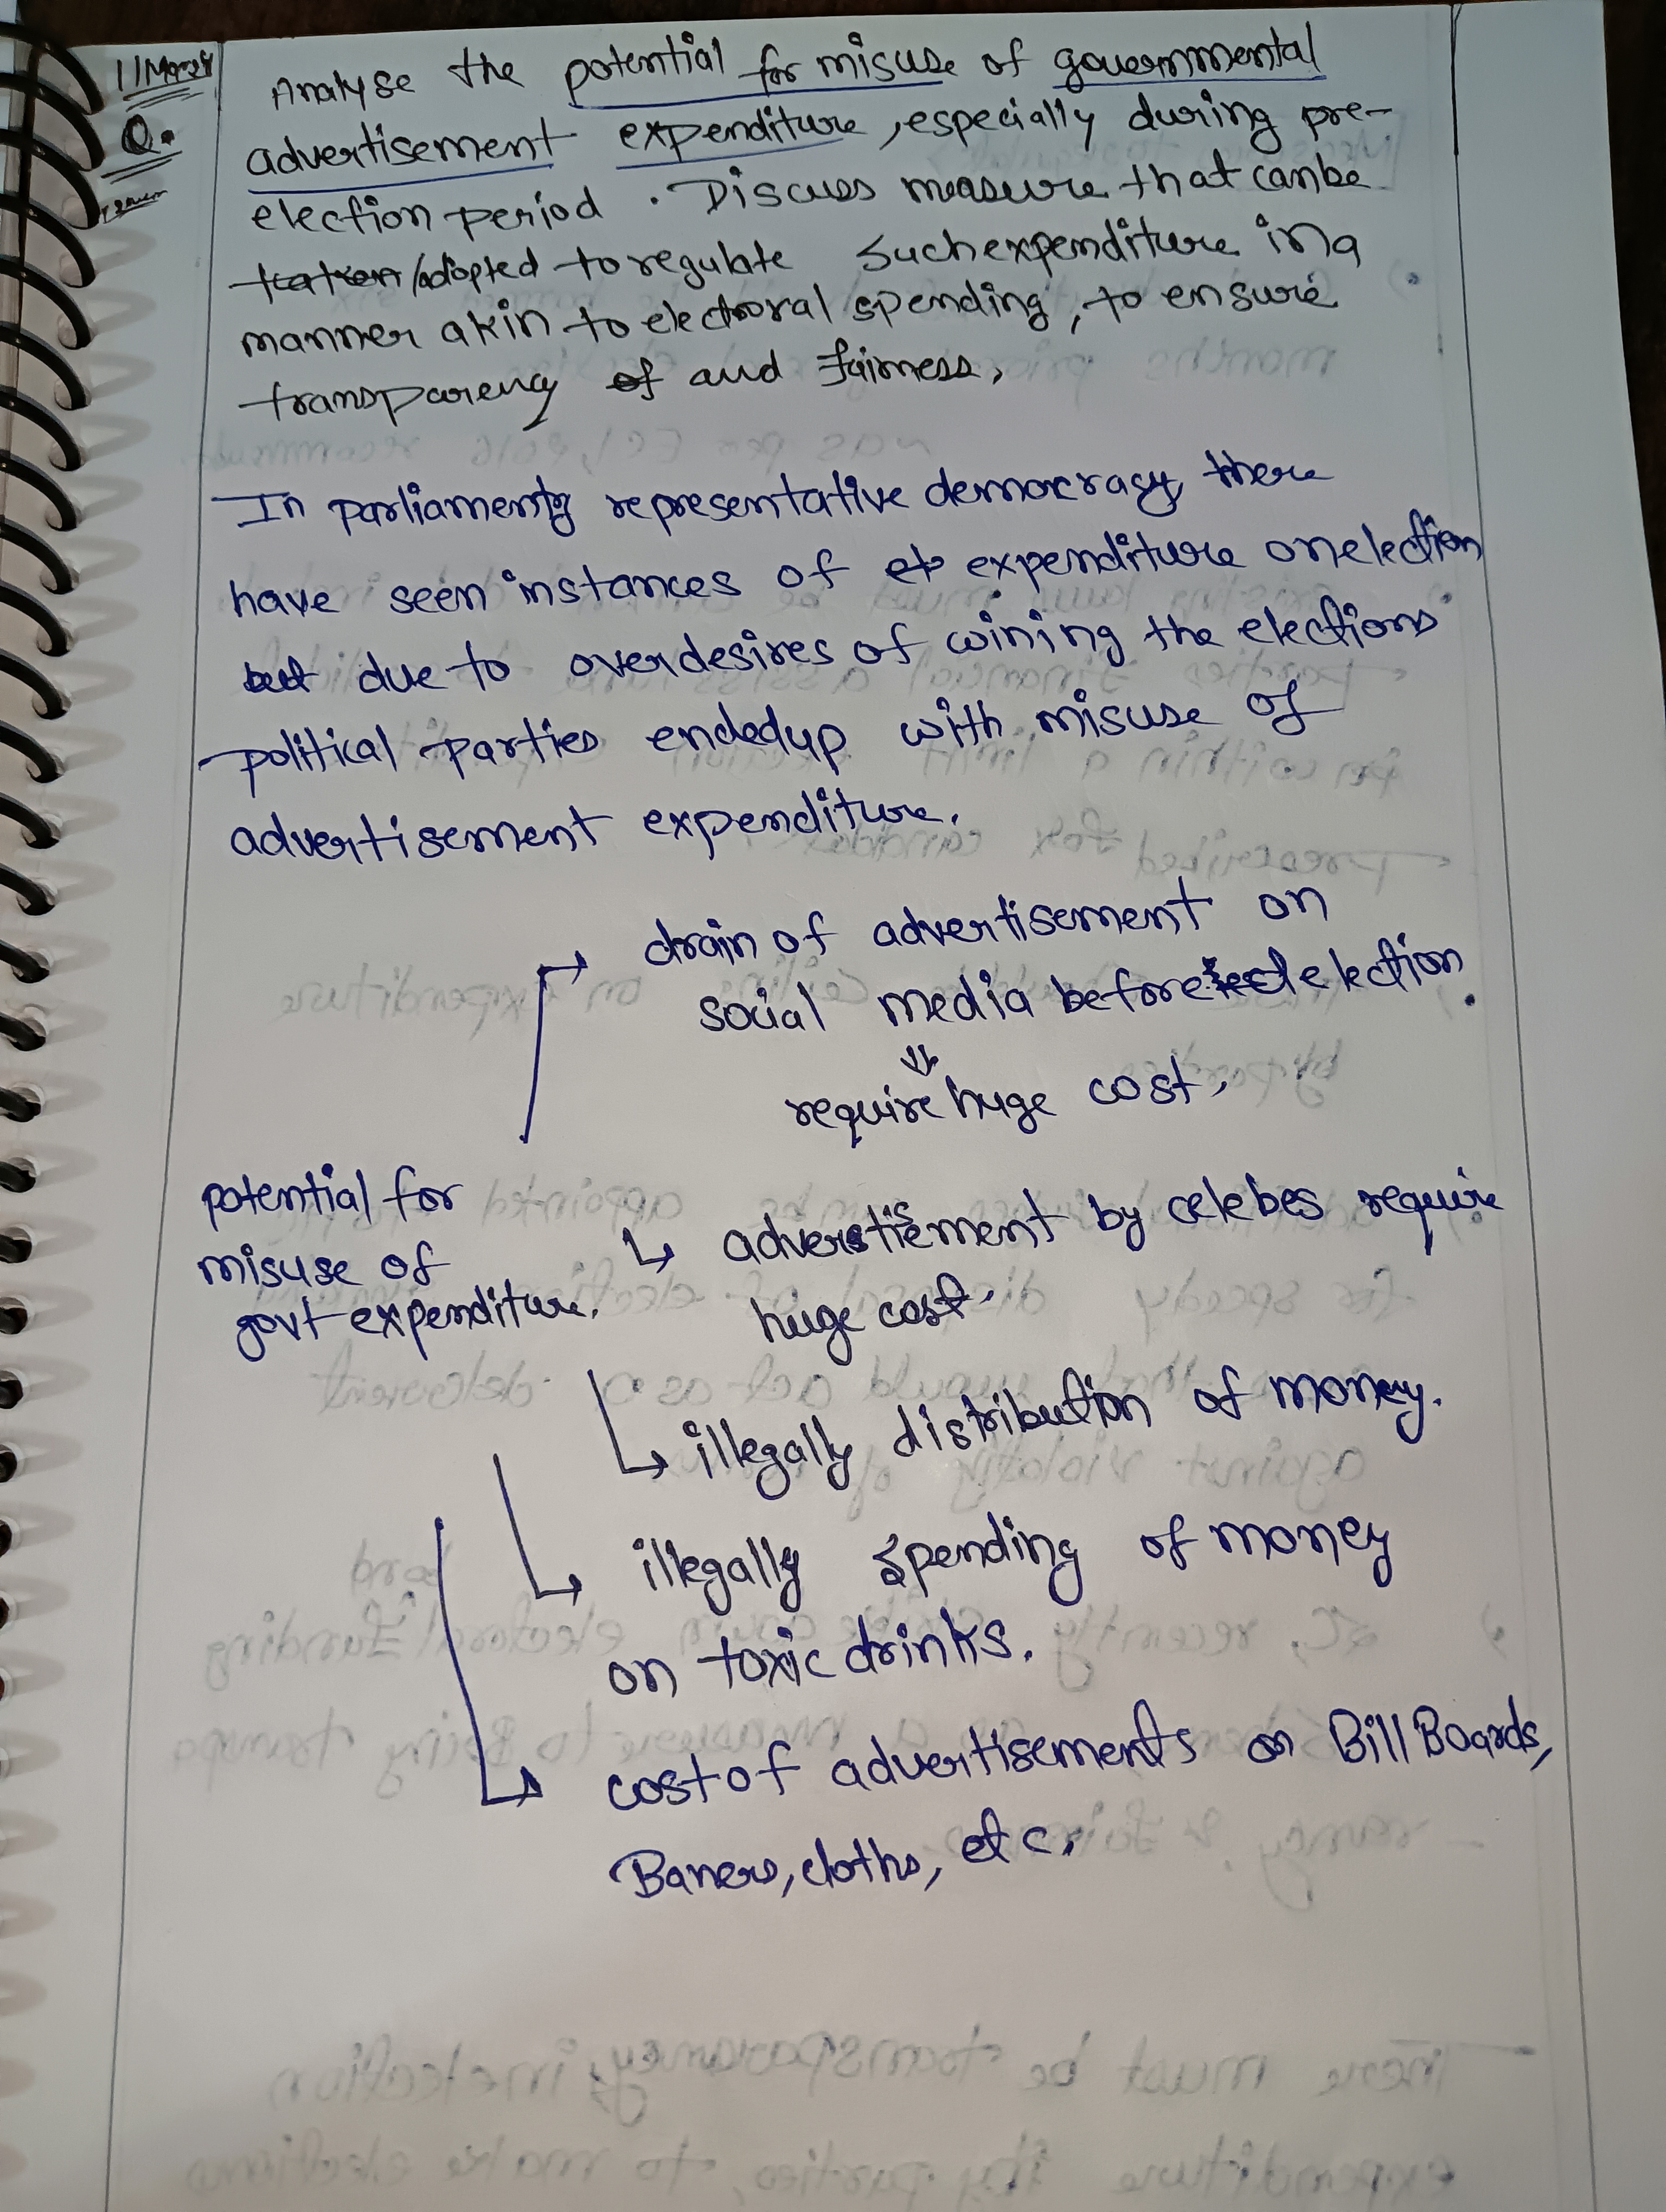 11Mar24
Q.
Analyse the potential for misuse of governmental
advertisement expenditure, especially during pre-
election period. Discuss measure that canbe
adopted to regulate such expenditure in a
manner akin to electoral spending, to ensure
transparency of and fairness,
In parliamenty representative democracy, there
have seen instances of expenditure on election
but due to overdesires of wining the elections
political parties endedup with misuse of
advertisement expenditure.
drain of advertisement on
social media before election.
require huge cost,
potential for
misuse of
govt expenditure.
advertisement by celebes require
huge cost.
illegally distribution of money.
illegally spending of money
on toxic drinks.
cost of advertisements on Bill Boards,
Baners, cloths, etc,